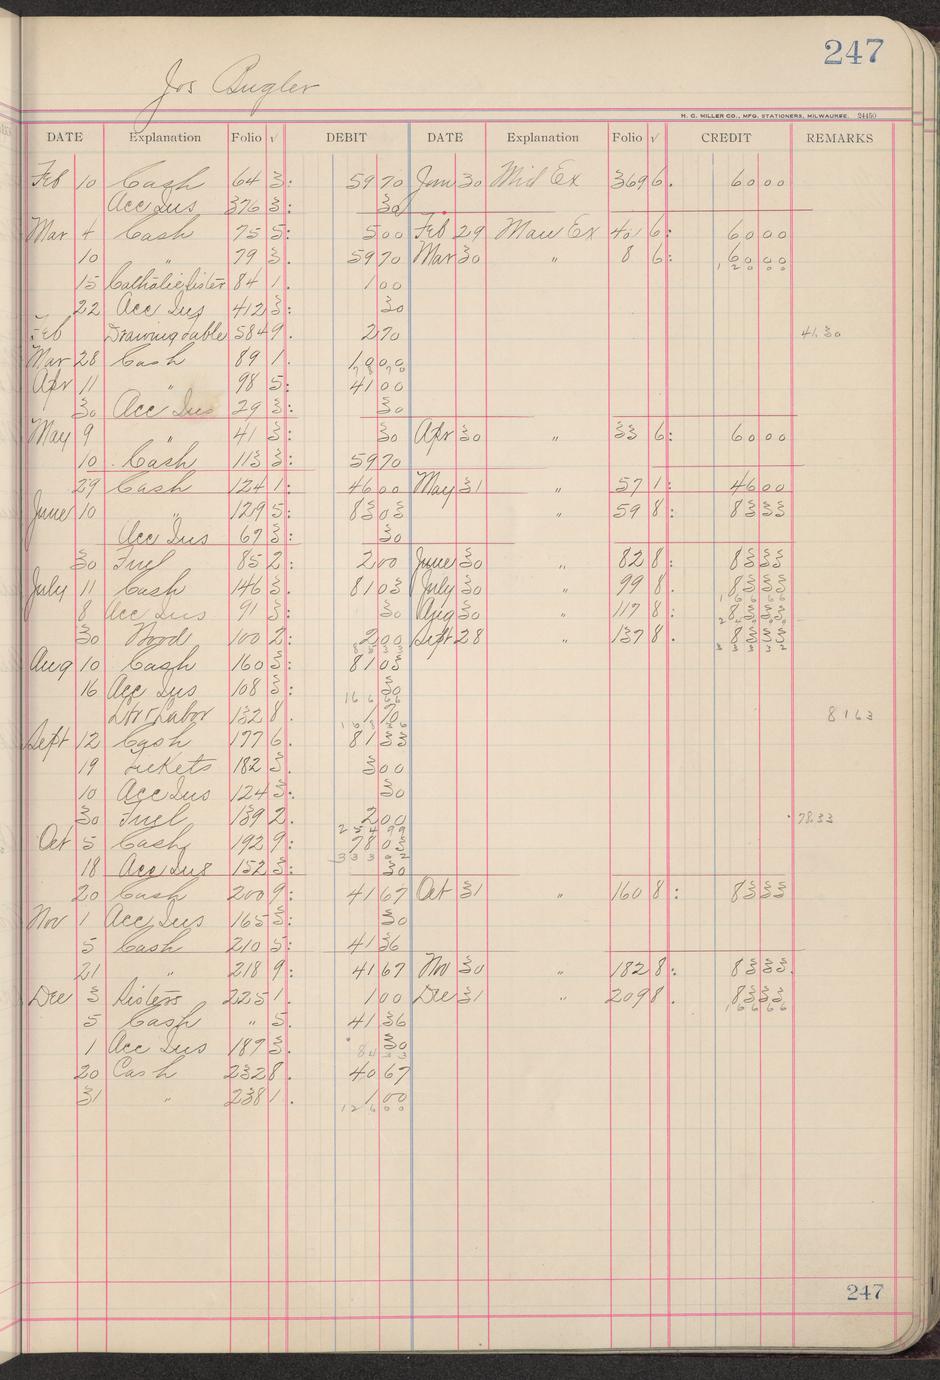 247
Jos Bugler
H. C. MILLER CO., MFG. STATIONERS, MILWAUKEE. 24450
DATE Explanation Folio √ DEBIT DATE Explanation Folio √ CREDIT REMARKS
Feb 10 Cash 64 3: 59 70 Jan 30 Mid Ex 369 6. 60 00
Acc Ins 376 3: 30
Mar 4 Cash 75 5: 5 00 Feb 29 Maw Ex 401 6: 60 00
10 " 79 3. 59 70 Mar 30 " 8 6: 60 00
1 2 0 00
15 Catholic Sister 84 1. 1 00
22 Acc Ins 412 3: 30
Feb Drawing table 584 9. 2 70 41.30
Mar 28 Cash 89 1. 19 00
Apr 11 " 98 5: 41 00
30 Acc Ins 29 3: 30
May 9 " 41 3: 30 Apr 30 " 33 6: 60 00
10 Cash 113 3: 59 70
29 Cash 124 1: 46 00 May 31 " 57 1: 46 00
June 10 " 129 5: 83 03 " 59 8: 83 33
Acc Ins 67 3: 30
30 Fuel 85 2: 2 00 June 30 " 82 8: 83 33
July 11 Cash 146 3. 81 03 July 30 " 99 8. 83 33
1 6 6 6 6
8 Acc Ins 91 3: 30 Aug 30 " 117 8: 83 33
30 Wood 100 2: 2 00 Sept 28 " 137 8. 83 33
3 3 3 3 2
Aug 10 Cash 160 3: 81 03
16 Acc Ins 108 3: 30
16 6 66
Str Labor 132 8. 1 70 81 63
Sept 12 Cash 177 6. 81 33
19 Tickets 182 3. 3 00
10 Acc Ins 124 3: 30
30 Fuel 139 2. 2 00 78.33
2 5 4 99
Oct 5 Cash 192 9: 78 03
3 3 3 0 2
18 Acc Ins 152 3: 30
20 Cash 200 9: 41 67 Oct 31 " 160 8: 83 33
Nov 1 Acc Ins 165 3: 30
5 Cash 210 5: 41 36
21 " 218 9: 41 67 Nov 30 " 182 8: 83 33
Dec 3 Sisters 225 1. 1 00 Dec 31 " 209 8. 83 33
1 6 6 6 6
5 Cash " 5. 41 36
1 Acc Ins 187 3. 30
84 33
20 Cash 232 8. 40 67
31 " 238 1. 1 00
12 6 00
247